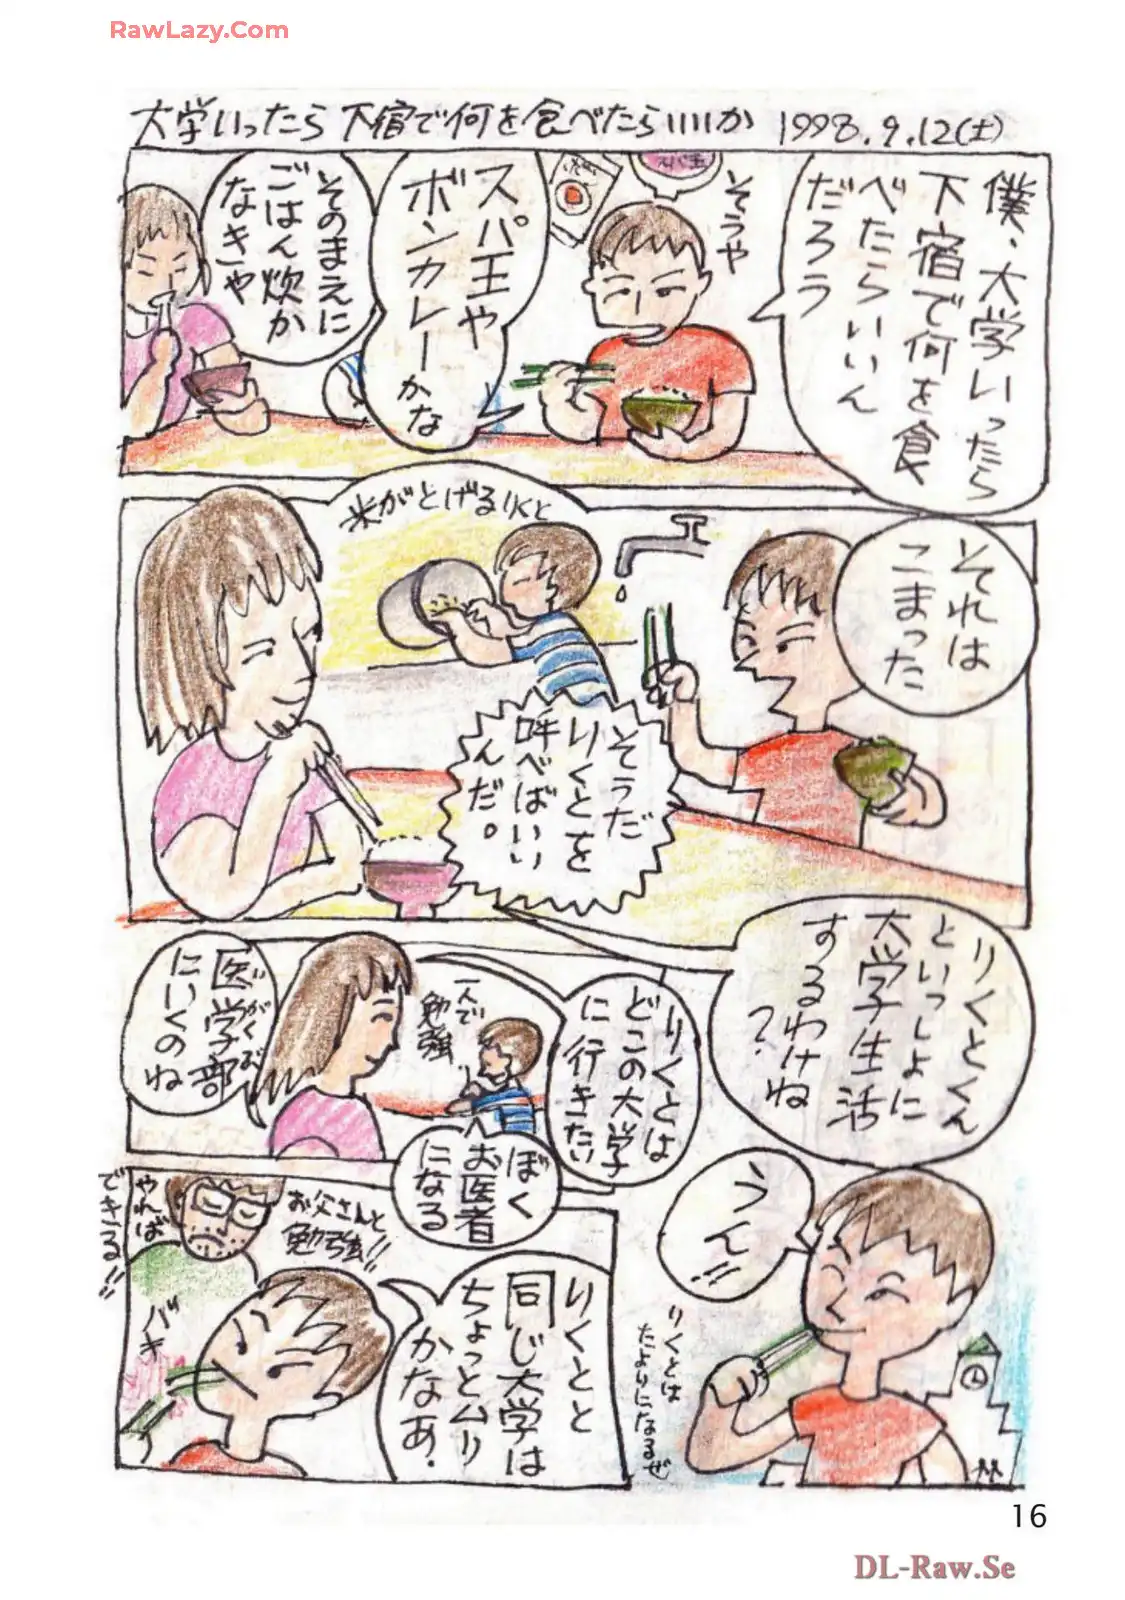 RawLazy.Com
大学いったら下宿で何を食べたらいいか 1998.9.12(土)
僕、大学いったら
下宿で何を食
べたらいいん
だろう
そうや
スパ王
スパ王や
ボンカレーかな
そのまえに
ごはん炊か
なきゃ
それは
こまった
米がとげるりくと
そうだ
りくとを
呼べばいい
んだ。
りくとくん
といっしょに
大学生活
するわけね
?
うん!!
りくとは
たよりになるぜ
りくとは
どこの大学
に行きたい
一人で
勉強
ぼく
お医者
になる
医学部
いがくぶ
にいくのね
りくとと
同じ大学は
ちょっとムリ
かなあ.
お父さんと
勉強!!
やれば
できる!!
バキ
16
DL-Raw.Se